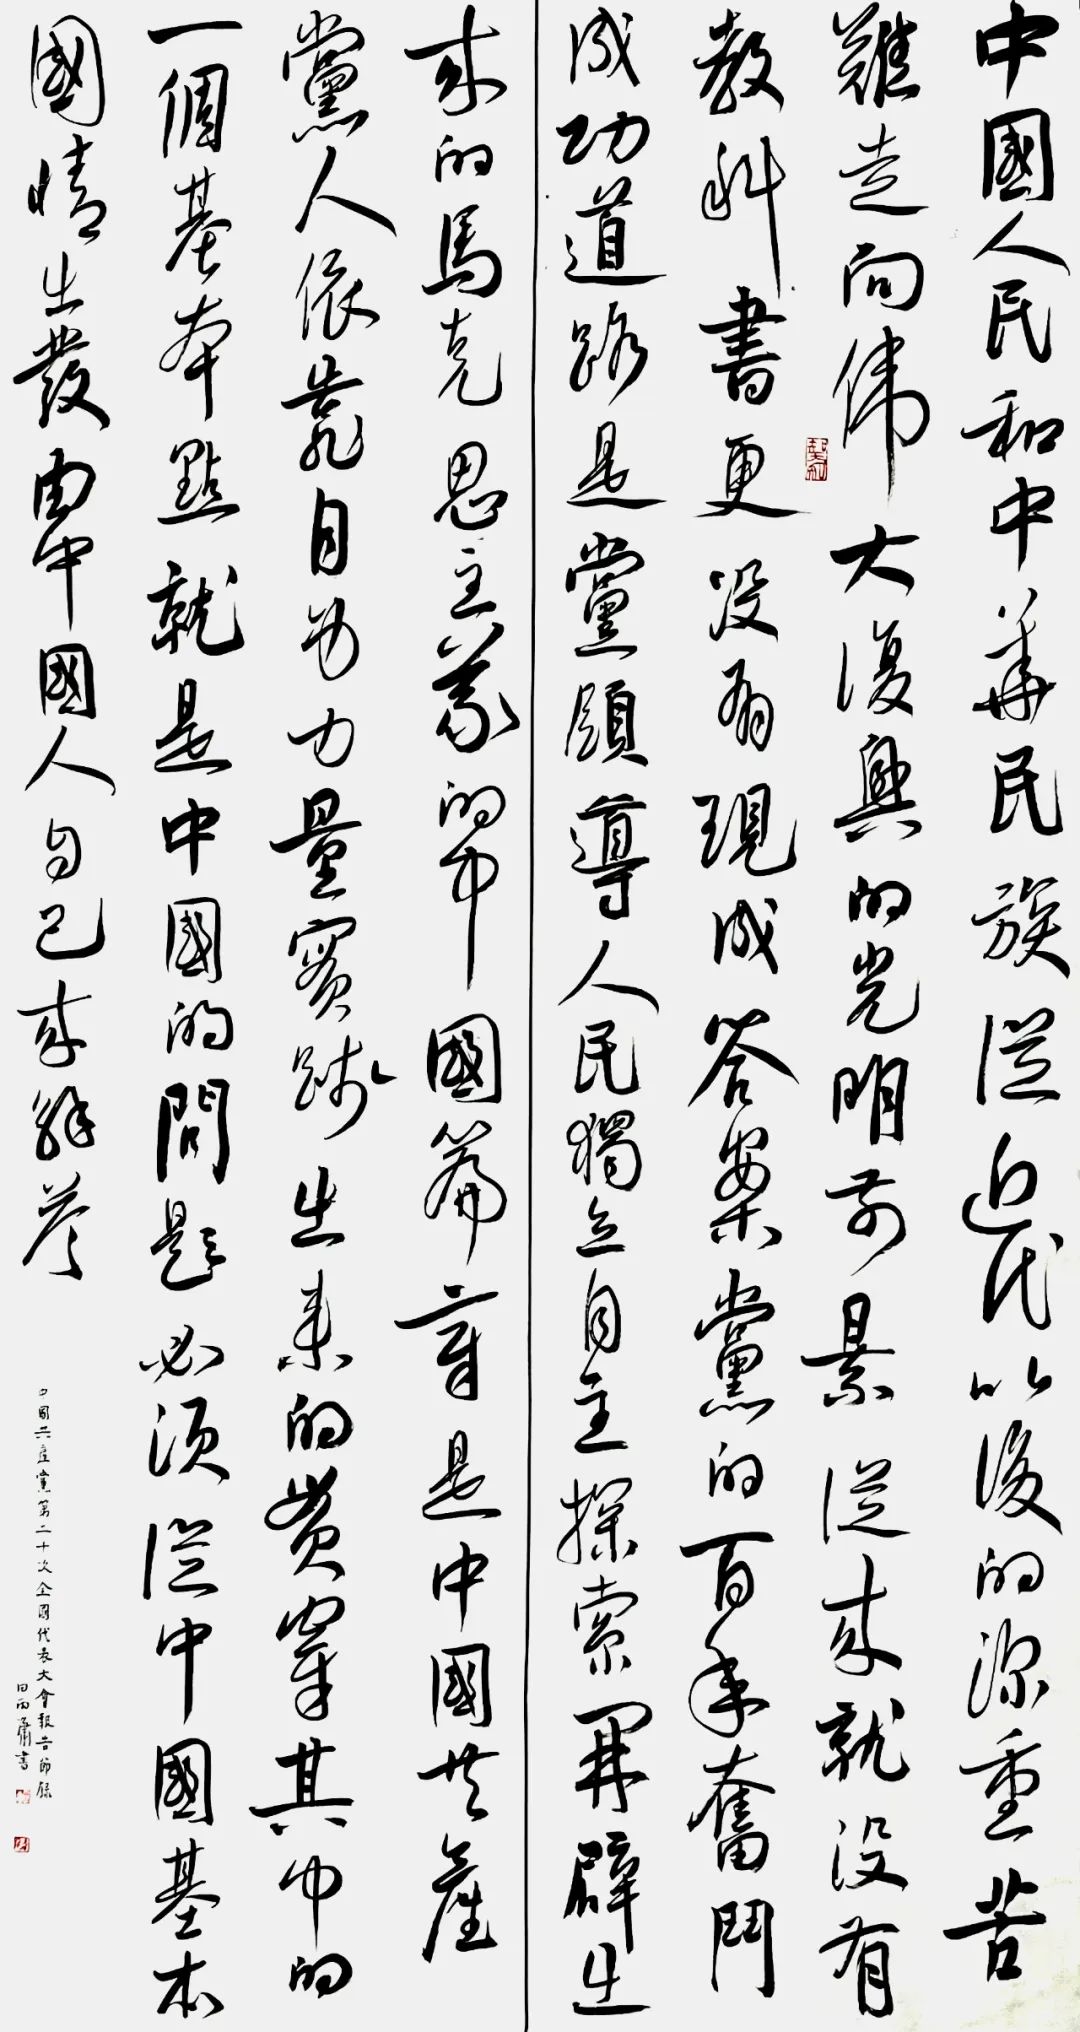 中國人民和中華民族從近代以後的深重苦
難走向偉大復興的光明前景從來就没有
教科書更没有現成答案黨的百年奮鬥
成功道路是黨領導人民獨立自主探索開辟出
來的馬克思主義的中國篇章是中國共產
黨人依靠自身力量實踐出來的貫穿其中的
一個基本點就是中國的問題必須從中國基本
國情出發由中國人自己來解答
中國共產黨第二十次全國代表大會報告節錄
田雨書